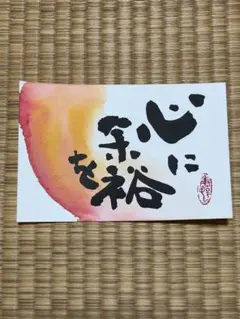 心に
余裕
を